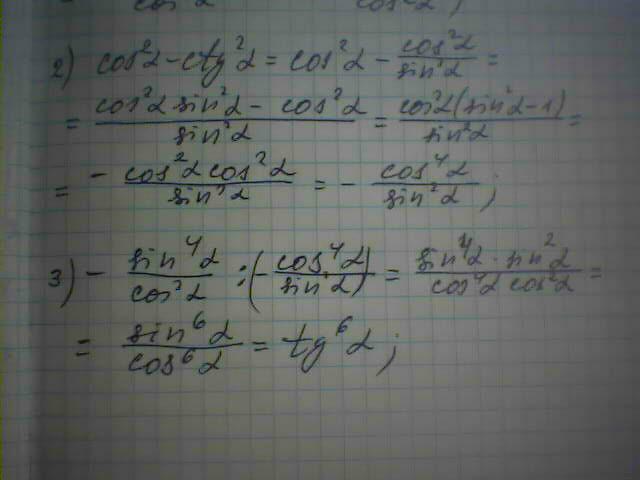 2) cos²α - ctg²α = cos²α - cos²α/sin²α =
= (cos²α sin²α - cos²α)/sin²α = cos²α(sin²α-1)/sin²α =
= - cos²α cos²α/sin²α = - cos⁴α/sin²α ;
3) - sin⁴α/cos²α : (- cos⁴α/sin²α) = sin⁴α · sin²α/cos⁴α cos²α =
= sin⁶α/cos⁶α = tg⁶α ;